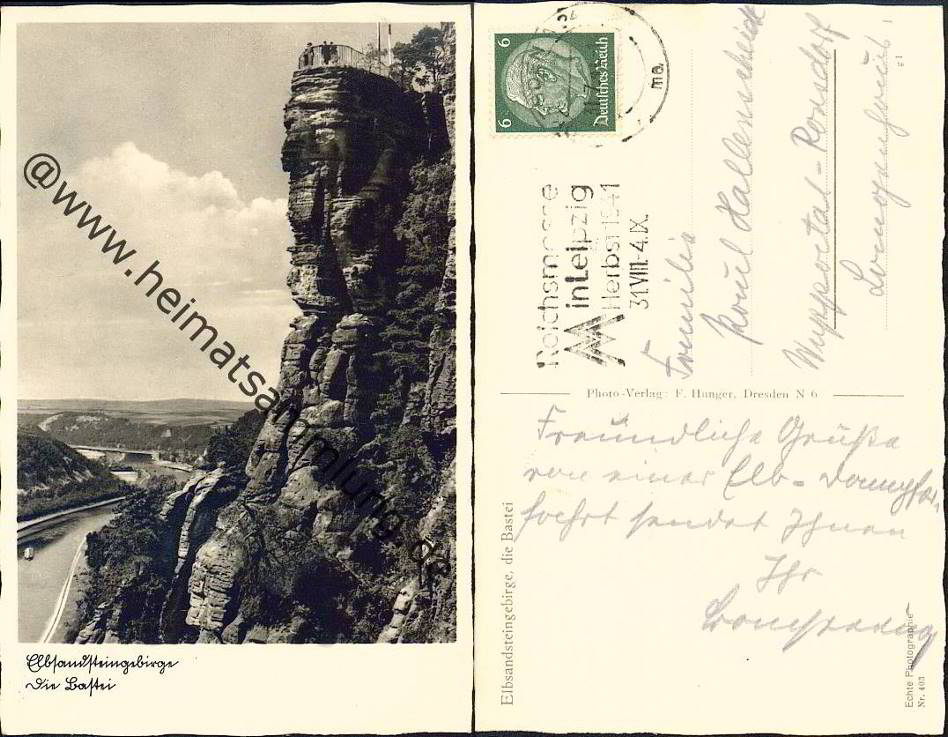 @www.heimatsammlung.de
Elbsandsteingebirge
Die Bastei
6 6
Deutsches Reich
Reichsmesse
in Leipzig
Herbst 1941
31.VIII.-4.IX.
Familie
Hallenscheidt
Wuppertal-Ronsdorf
Photo-Verlag: F. Hunger, Dresden N 6
Freundliche Grüße
von einer Elb-Dampfer
fahrt sendet Ihnen
Ihr
Elbsandsteingebirge, die Bastei
Echte Photographie
Nr. 403